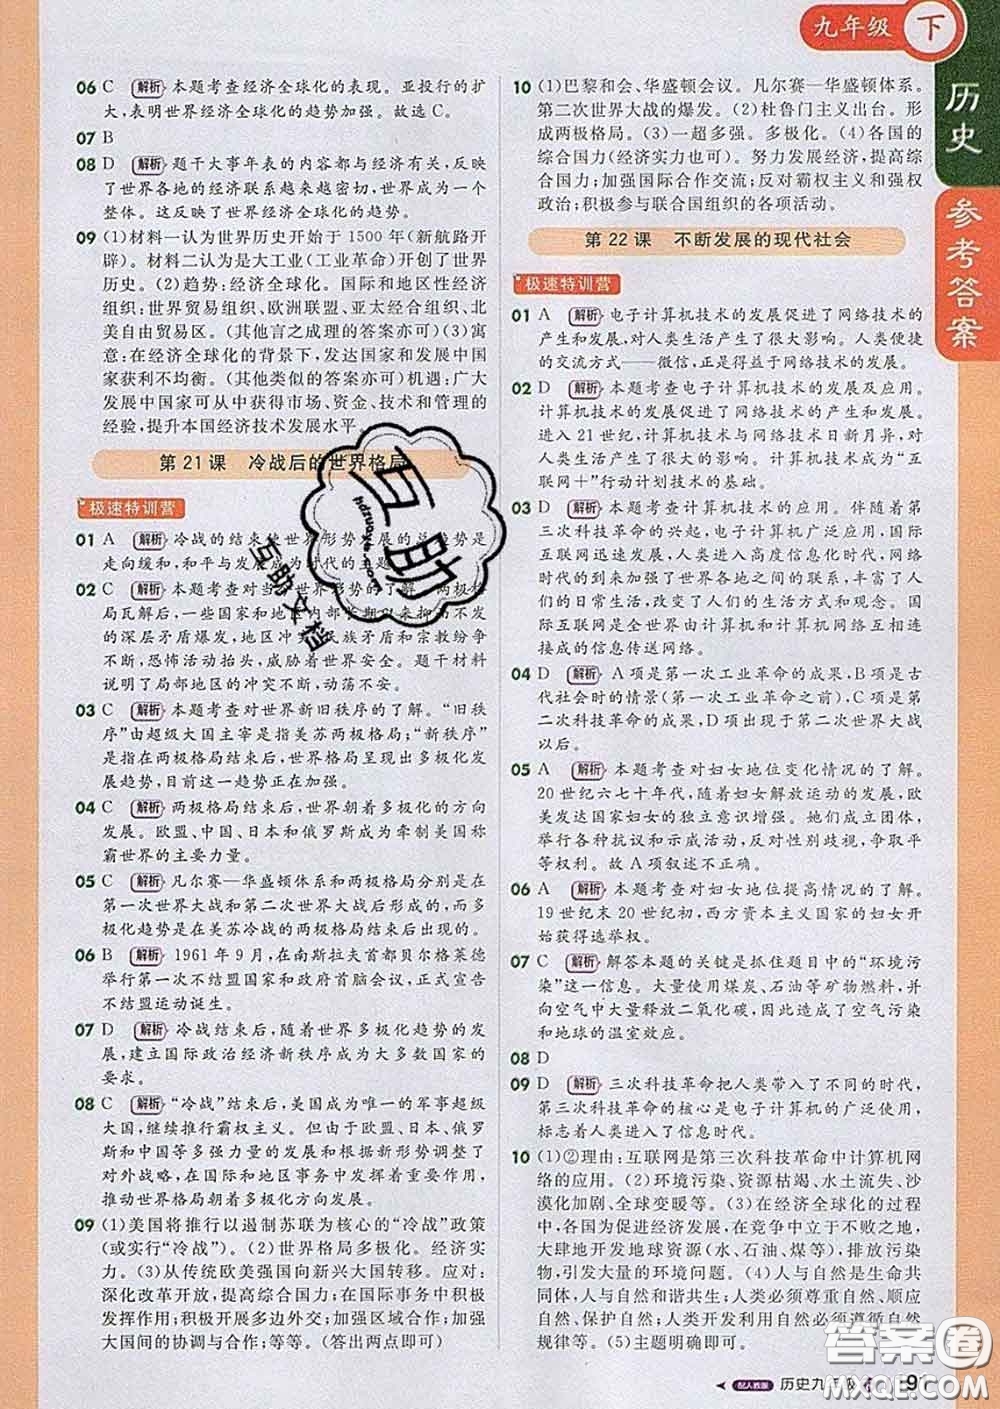 九年级 下
历史
参考答案
06 C 解析 本题考查经济全球化的表现。亚投行的扩
大,表明世界经济全球化的趋势加强。故选C。
07 B
08 D 解析 题干大事年表的内容都与经济有关,反映
了世界各地的经济联系越来越密切,世界成为一个
整体。这反映了世界经济全球化的趋势。
09 (1)材料一认为世界历史开始于1500年(新航路开
辟)。材料二认为是大工业(工业革命)开创了世界
历史。(2)趋势:经济全球化。国际和地区性经济
组织:世界贸易组织、欧洲联盟、亚太经合组织、北
美自由贸易区。(其他言之成理的答案亦可)(3)寓
意:在经济全球化的背景下,发达国家和发展中国
家获利不均衡。(其他类似的答案亦可)机遇:广大
发展中国家可从中获得市场、资金、技术和管理的
经验,提升本国经济技术发展水平。
第21课 冷战后的世界格局
极速特训营
01 A 解析 冷战的结束使世界形势发展的总趋势是
走向缓和,和平与发展成为时代的主题。
02 C 解析 本题考查对当今世界形势的了解。两极格
局瓦解后,一些国家和地区内部长期以来抑而不发
的深层矛盾爆发,地区冲突、民族矛盾和宗教纷争
不断,恐怖活动抬头,威胁着世界安全。题干材料
说明了局部地区的冲突不断,动荡不安。
03 C 解析 本题考查对世界新旧秩序的了解。“旧秩
序”由超级大国主宰是指美苏两极格局;“新秩序”
是指在两极格局结束后,世界政治格局出现多极化
发展趋势,目前这一趋势正在加强。
04 C 解析 两极格局结束后,世界朝着多极化的方向
发展。欧盟、中国、日本和俄罗斯成为牵制美国称
霸世界的主要力量。
05 C 解析 凡尔赛—华盛顿体系和两极格局分别是在
第一次世界大战和第二次世界大战后形成的,而多
极化趋势是在美苏冷战的两极格局结束后出现的。
06 B 解析 1961年9月,在南斯拉夫首都贝尔格莱德
举行第一次不结盟国家和政府首脑会议,正式宣告
不结盟运动诞生。
07 D 解析 冷战结束后,随着世界多极化趋势的发
展,建立国际政治经济新秩序成为大多数国家的要
求。
08 C 解析 “冷战”结束后,美国成为唯一的军事超级
大国,继续推行霸权主义。但由于欧盟、日本、俄罗
斯和中国等多个强力量的兴起,美国不得不调整了
对外战略,在国际和地区事务中发挥着重要作用,
推动世界格局朝着多极化方向发展。
09 (1)美国将推行以遏制苏联为核心的“冷战”政策
(或实行“冷战”)。(2)世界格局多极化。经济实
力。(3)从传统欧美强国向新兴大国转移。应对:
深化改革开放,提高综合国力;在国际事务中积极
发挥作用;积极开展多边外交;加强区域合作;加强
大国间的协调与合作;等等。(答出两点即可)
10 (1)巴黎和会、华盛顿会议。凡尔赛—华盛顿体系。
第二次世界大战的爆发。(2)杜鲁门主义出台。形
成两极格局。(3)一超多强。多极化。(4)各国的
综合国力(经济实力也可)。努力发展经济,提高综合
国力;加强国际合作交流;反对霸权主义和强权
政治;积极参与联合国组织的各项活动。
第22课 不断发展的现代社会
极速特训营
01 A 解析 电子计算机技术的发展促进了网络技术的
产生和发展,对人类生活产生了很大影响。人类便捷
的交流方式——微信,正是得益于网络技术的发展。
02 D 解析 本题考查电子计算机技术的发展及应用。
计算机技术的发展促进了网络技术的产生和发展。
进入21世纪,计算机与网络技术日新月异,对
人类生活产生了很大的影响。计算机技术成为“互
联网+”行动计划技术的基础。
03 D 解析 本题考查计算机技术的应用。伴随着第
三次科技革命的兴起,电子计算机广泛应用,国际
互联网迅速发展,人类进入高度信息化时代。网络
时代的到来,加强了世界各地之间的联系,丰富了人
们的日常生活,改变了人们的生活方式和观念。国
际互联网是全世界由计算机和计算机网络互相连
接成的信息传送网络。
04 D 解析 A项是第一次工业革命的成果,B项是古
代社会时的情景(第一次工业革命之前),C项是第
二次科技革命的成果,D项出现于第二次世界大战
以后。
05 A 解析 本题考查对妇女地位变化情况的了解。
20世纪六七十年代,随着妇女解放运动的发展,欧
美发达国家妇女的独立意识增强。她们成立团体,
举行各种抗议和示威活动,反对性别歧视,争取平
等权利。故A项叙述不正确。
06 A 解析 本题考查对妇女地位提高情况的了解。
19世纪末20世纪初,西方资本主义国家的妇女开始
获得选举权。
07 C 解析 解答本题的关键是抓住题目中的“环境污
染”这一信息。大量使用煤炭、石油等矿物燃料,并
向空气中大量释放二氧化碳,因此造成了空气污染
和地球的温室效应。
08 D
09 D 解析 三次科技革命把人类带入了不同的时代,
第三次科技革命的核心是电子计算机的广泛使用,
标志着人类进入了信息时代。
10 (1)②理由:互联网是第三次科技革命中计算机网
络的应用。(2)环境污染、资源枯竭、水土流失、沙
漠化加剧、全球变暖等。(3)在经济全球化的过程
中,各国为促进经济发展,在竞争中立于不败之地,
大肆地开发地球资源(水、石油、煤等),排放污染
物,引发大量的环境问题。(4)人与自然是相互依
存的,人与自然和谐共生,人类必须自觉遵循自然
规律等。(5)主题明确即可。
互助
hdzuoye.com
互助文档
答案圈
MXQE.COM
配人教版 历史九年级 91